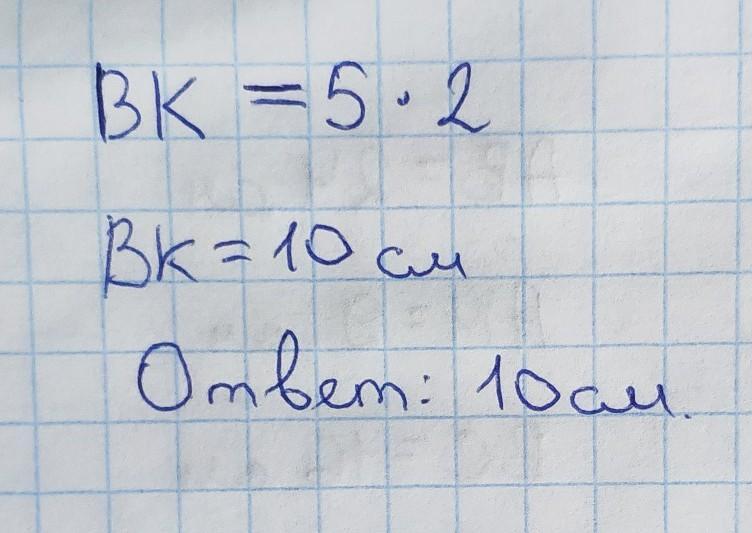 BK = 5 · 2
BK = 10 см
Ответ: 10 см.